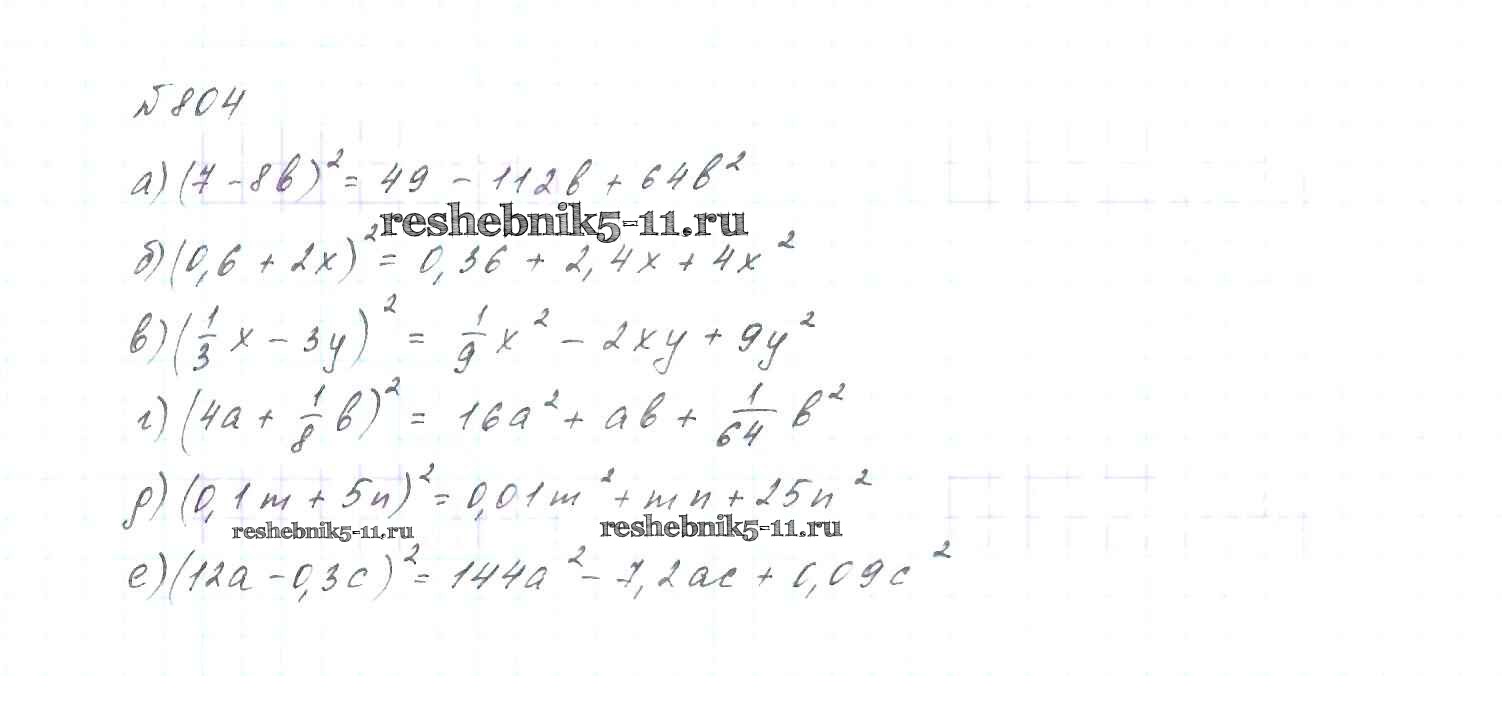 №804
а) (7 - 8b)² = 49 - 112b + 64b²
reshebnik5-11.ru
б) (0,6 + 2x)² = 0,36 + 2,4x + 4x²
в) (1/3 x - 3y)² = 1/9 x² - 2xy + 9y²
г) (4a + 1/8 b)² = 16a² + ab + 1/64 b²
д) (0,1m + 5n)² = 0,01m² + mn + 25n²
reshebnik5-11.ru reshebnik5-11.ru
е) (12a - 0,3c)² = 144a² - 7,2ac + 0,09c²